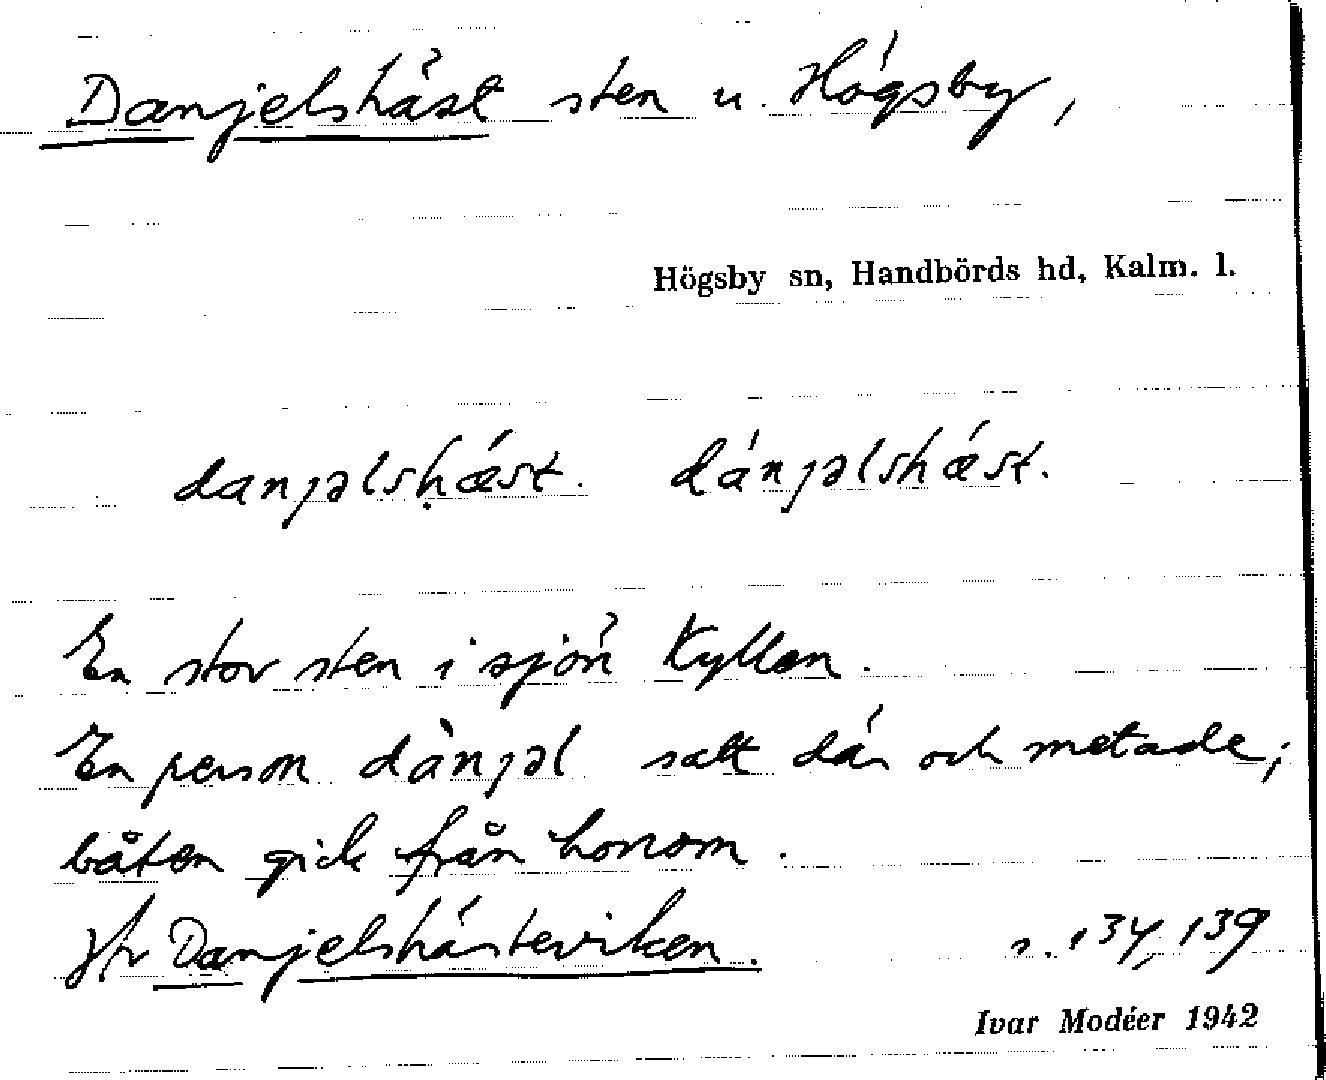 Danjelshäst sten u. Högsby,
Högsby sn, Handbörds hd, Kalm. l.
danȷəlsḥǽst. dánȷəlshǽst.
En stor sten i sjön Kyllen.
En person dànȷəl satt där och metade;
båten gick från honom.
Jfr Danjelshästeviken. s. 134, 139
Ivar Modéer 1942